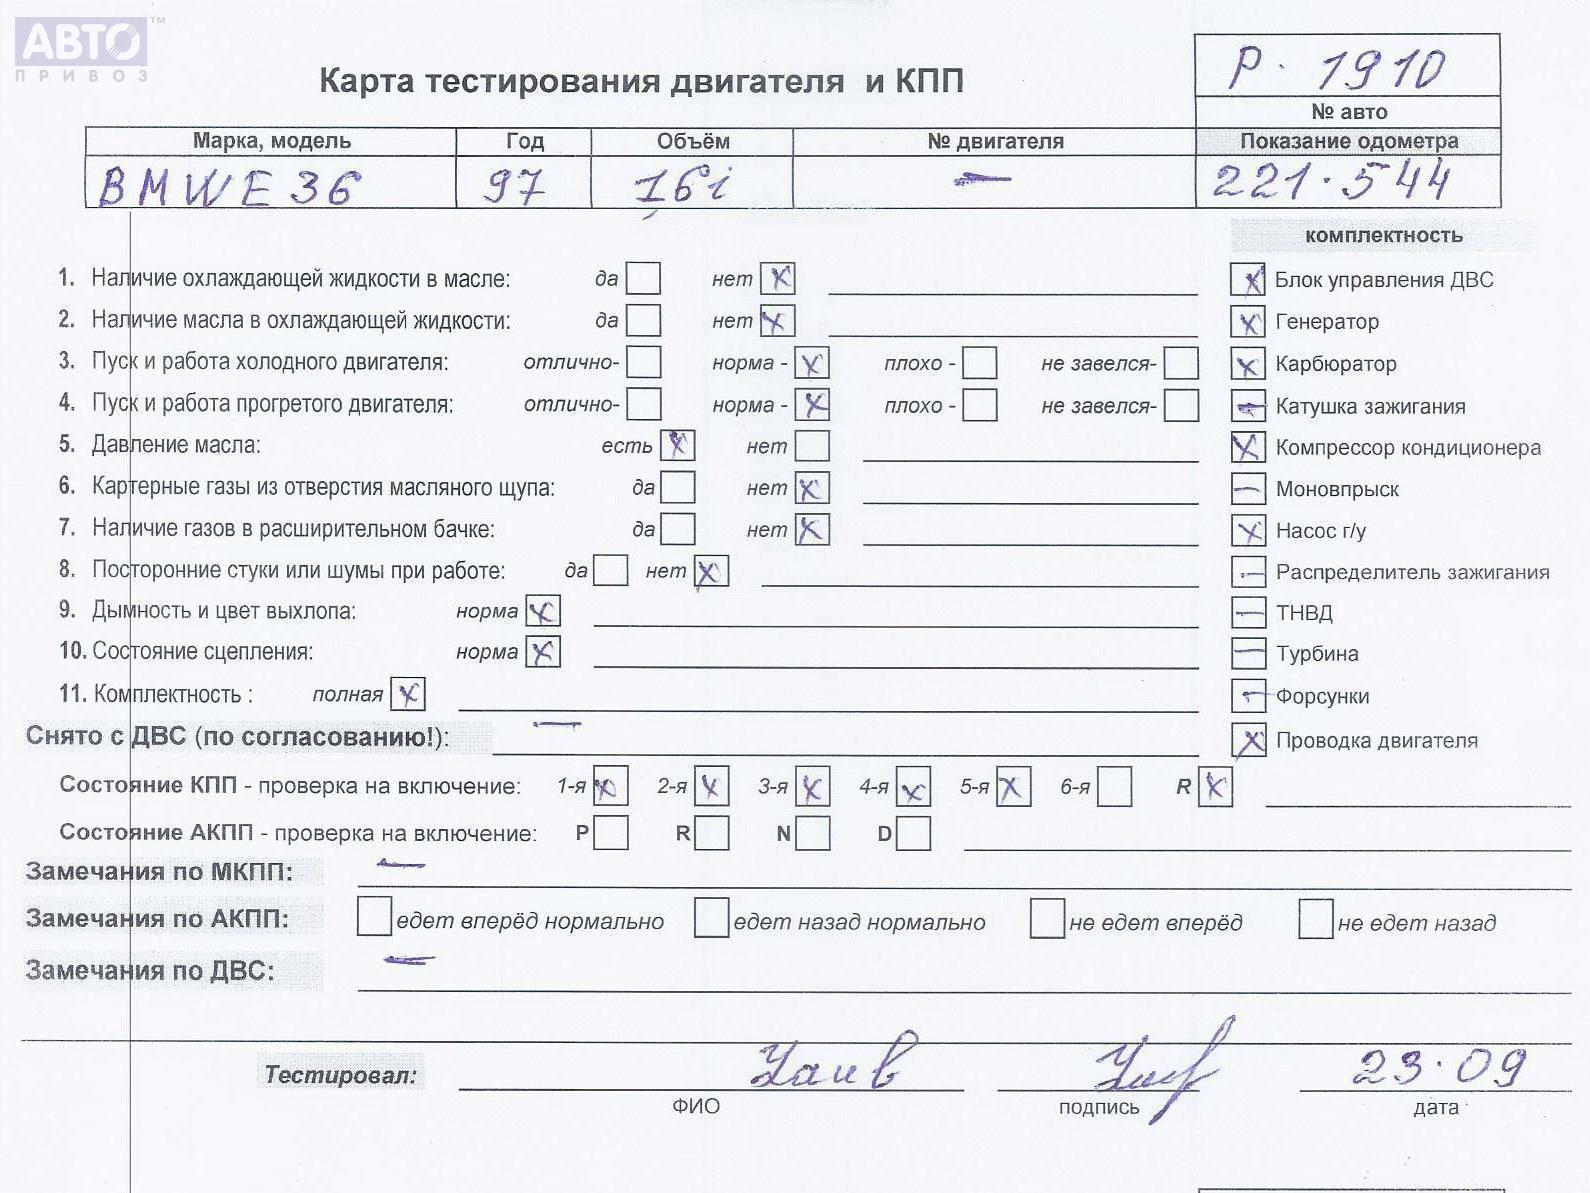 АВТО™
ПРИВОЗ
Р. 1910
Карта тестирования двигателя и КПП
№ авто
Марка, модель Год Объём № двигателя Показание одометра
BMW E36 97 1,6i — 221.544
комплектность
1. Наличие охлаждающей жидкости в масле: да нет X Блок управления ДВС X
2. Наличие масла в охлаждающей жидкости: да нет X Генератор X
3. Пуск и работа холодного двигателя: отлично- норма - X плохо - не завелся- X Карбюратор
4. Пуск и работа прогретого двигателя: отлично- норма - X плохо - не завелся- — Катушка зажигания
5. Давление масла: есть X нет X Компрессор кондиционера
6. Картерные газы из отверстия масляного щупа: да нет X — Моновпрыск
7. Наличие газов в расширительном бачке: да нет X X Насос г/у
8. Посторонние стуки или шумы при работе: да нет X — Распределитель зажигания
9. Дымность и цвет выхлопа: норма X — ТНВД
10. Состояние сцепления: норма X — Турбина
11. Комплектность : полная X — Форсунки
Снято с ДВС (по согласованию!): — X Проводка двигателя
Состояние КПП - проверка на включение: 1-я X 2-я X 3-я X 4-я X 5-я X 6-я R X
Состояние АКПП - проверка на включение: P R N D
Замечания по МКПП: —
Замечания по АКПП: едет вперёд нормально едет назад нормально не едет вперёд не едет назад
Замечания по ДВС: —
Тестировал: 23.09
ФИО подпись дата